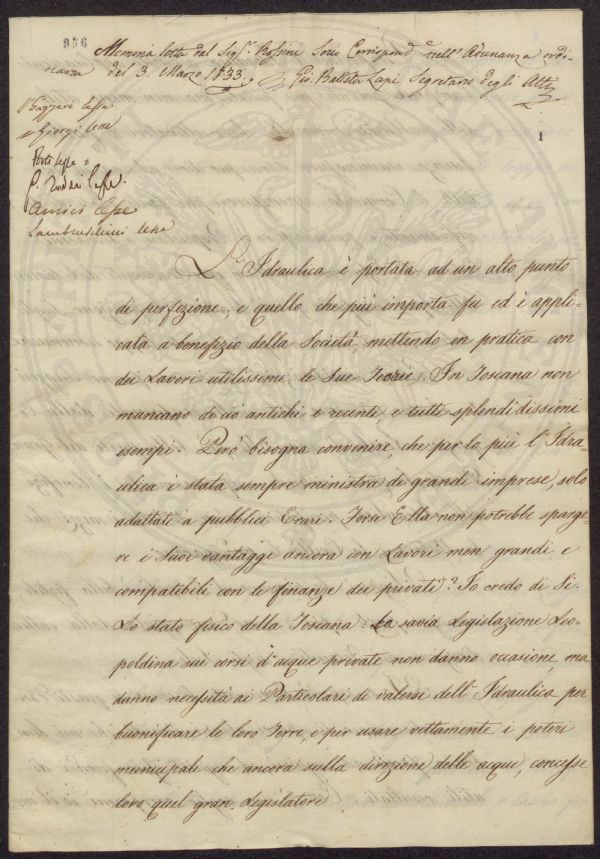 956
Memoria letta dal Sig.r Rossini Socio Corrispond.e nell'Adunanza ordi-
naria del 3. Marzo 1833. Gio. Batista Lapi Segretario degli Atti
1
Gazzeri lesse
Giorgi lesse
lesse
lesse
Amici lesse
Lambruschini lesse
L'Idraulica è portata ad un alto punto
di perfezione, e quello che più importa fu ed è appli-
cata a benefizio della Società, mettendo in pratica con
dei Lavori utilissimi le Sue Teorie. In Toscana non
mancano di ciò antichi e recenti, e tutti splendidissimi
esempi. Però bisogna convenire, che per lo più l'Idra-
ulica è stata sempre ministra di grandi imprese, solo
adattate a pubblici Erari. Forse Ella non potrebbe sparge-
re i Suoi vantaggi ancora con Lavori men grandi e
compatibili con le finanze dei privati? Io credo di Si.
Lo stato fisico della Toscana. La savia Legislazione Leo-
poldina sui corsi d'acque private non danno occasione, ma
danno necessità ai Particolari di valersi dell'Idraulica per
buonificare le loro Terre, e per usare rettamente i poteri
municipali che ancora sulla direzione delle acque, concesse
loro quel gran Legislatore